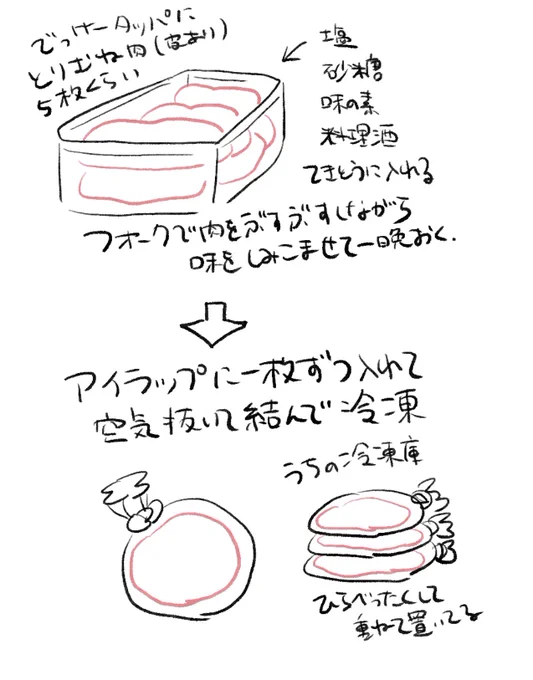 でっけータッパに
とりむね肉(皮あり)
5枚くらい
塩
砂糖
味の素
料理酒
てきとうに入れる
フォークで肉をぶすぶすしながら
味をしみこませて一晩おく.
アイラップに一枚ずつ入れて
空気抜いて結んで冷凍
うちの冷凍庫
ひらべったくして
重ねて置いてる